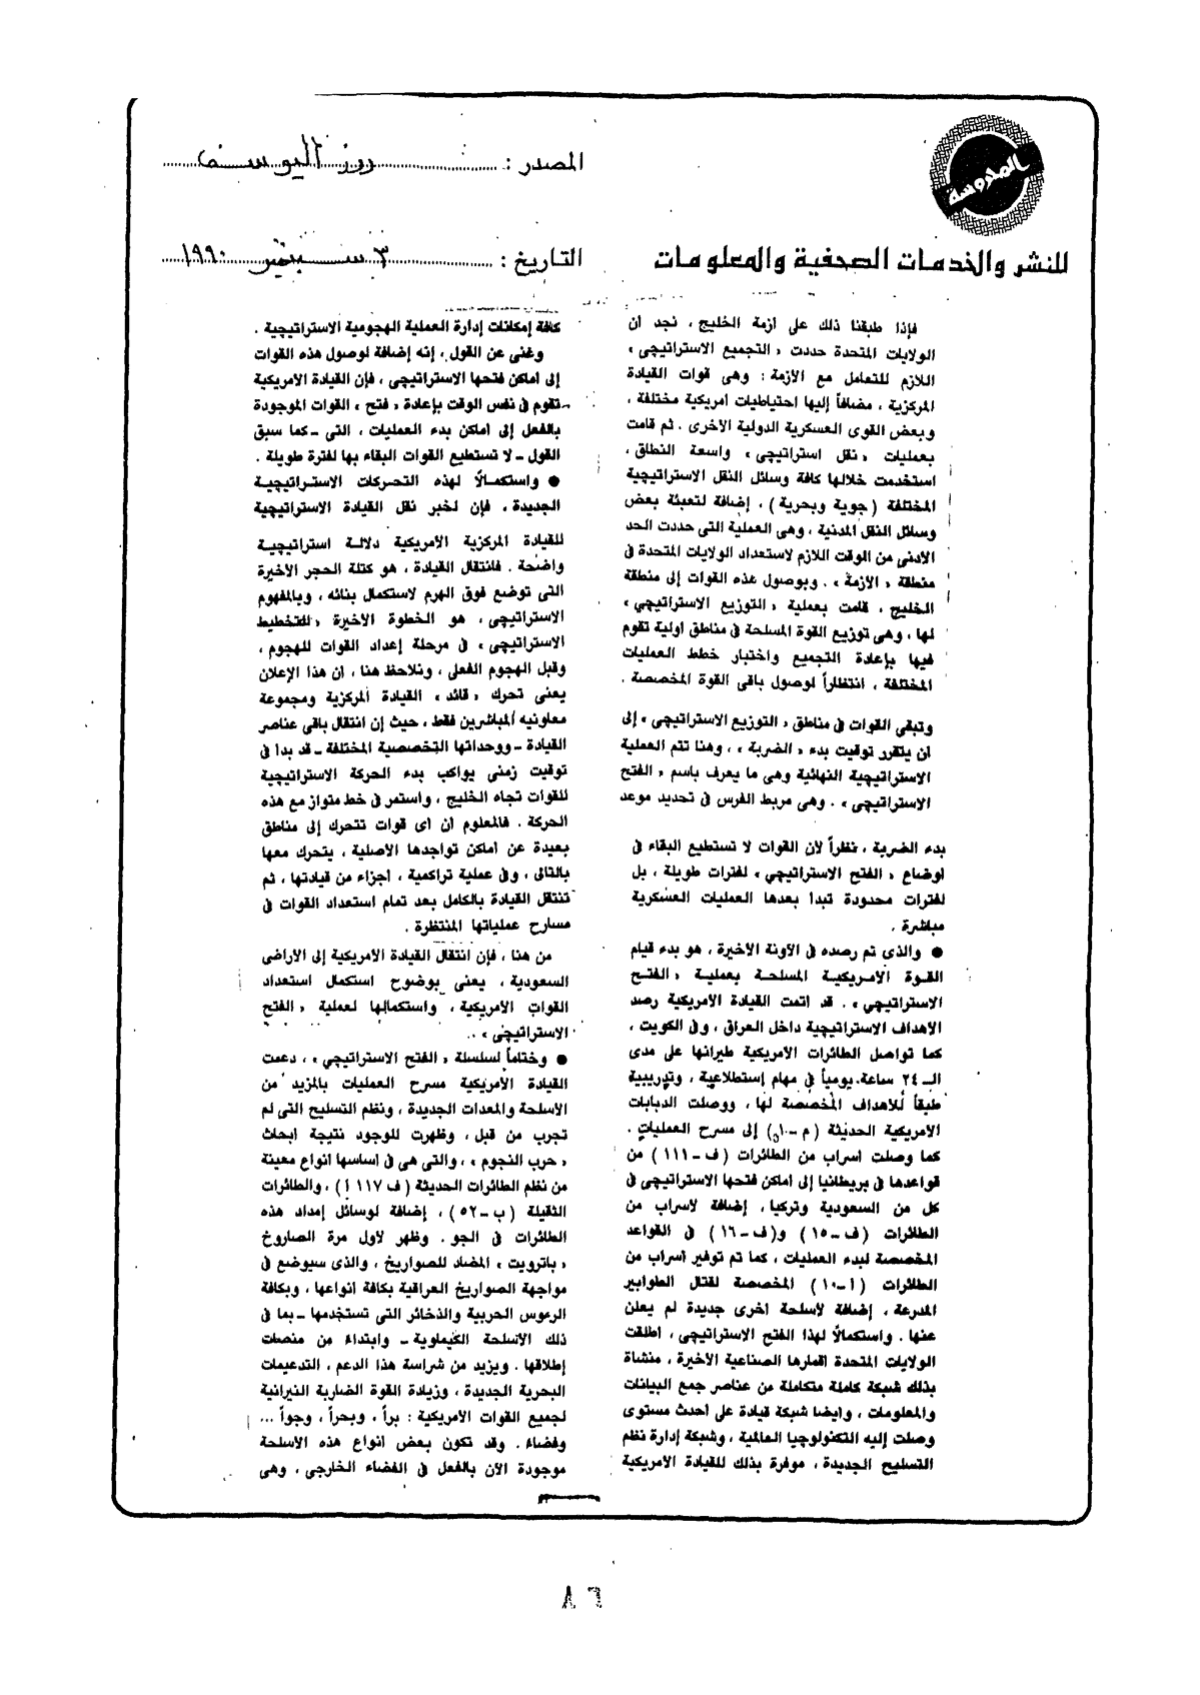 المدوسة
للنشر والخدمات الصحفية والمعلومات
المصدر : روز اليوسف
التاريخ : ٣ سبتمبر ١٩٩٠
فإذا طبقنا ذلك على أزمة الخليج ، نجد أن
الولايات المتحدة حددت « التجميع الاستراتيجى »
اللازم للتعامل مع الأزمة : وهى قوات القيادة
المركزية ، مضافاً إليها احتياطيات أمريكية مختلفة ،
وبعض القوى العسكرية الدولية الأخرى . ثم قامت
بعمليات « نقل استراتيجى » واسعة النطاق ،
استخدمت خلالها كافة وسائل النقل الاستراتيجية
المختلفة ( جوية وبحرية ) ، إضافة لتعبئة بعض
وسائل النقل المدنية ، وهى العملية التى حددت الحد
الأدنى من الوقت اللازم لاستعداد الولايات المتحدة فى
منطقة « الأزمة » . وبوصول هذه القوات إلى منطقة
الخليج ، قامت بعملية « التوزيع الاستراتيجى »
لها ، وهى توزيع القوة المسلحة فى مناطق أولية تقوم
فيها بإعادة التجميع واختبار خطط العمليات
المختلفة ، انتظاراً لوصول باقى القوة المخصصة .
وتبقى القوات فى مناطق « التوزيع الاستراتيجى » إلى
أن يتقرر توقيت بدء « الضربة » ، وهنا تتم العملية
الاستراتيجية النهائية وهى ما يعرف باسم « الفتح
الاستراتيجى » . وهى مربط الفرس فى تحديد موعد
بدء الضربة ، نظراً لأن القوات لا تستطيع البقاء فى
أوضاع « الفتح الاستراتيجى » لفترات طويلة ، بل
لفترات محدودة تبدأ بعدها العمليات العسكرية
مباشرة .
● والذى تم رصده فى الآونة الأخيرة ، هو بدء قيام
القوة الأمريكية المسلحة بعملية « الفتح
الاستراتيجى » . قد أتمت القيادة الأمريكية رصد
الأهداف الاستراتيجية داخل العراق ، وفى الكويت ،
كما تواصل الطائرات الأمريكية طيرانها على مدى
الـ ٢٤ ساعة يومياً فى مهام إستطلاعية ، وتدريبية
طبقاً للأهداف المخصصة لها ، ووصلت الدبابات
الأمريكية الحديثة ( م - ١٠) إلى مسرح العمليات .
كما وصلت أسراب من الطائرات ( ف - ١١١ ) من
قواعدها فى بريطانيا إلى أماكن فتحها الاستراتيجى فى
كل من السعودية وتركيا ، إضافة لأسراب من
الطائرات ( ف - ١٥ ) و( ف - ١٦ ) فى القواعد
المخصصة لبدء العمليات ، كما تم توفير أسراب من
الطائرات ( أ - ١٠ ) المخصصة لقتال الطوابير
المدرعة ، إضافة لأسلحة أخرى جديدة لم يعلن
عنها . واستكمالاً لهذا الفتح الاستراتيجى ، أطلقت
الولايات المتحدة أقمارها الصناعية الأخيرة ، منشأة
بذلك شبكة كاملة متكاملة من عناصر جمع البيانات
والمعلومات ، وأيضاً شبكة قيادة على أحدث مستوى
وصلت إليه التكنولوجيا العالمية ، وشبكة إدارة نظم
التسليح الجديدة ، موفرة بذلك للقيادة الأمريكية
كافة إمكانات إدارة العملية الهجومية الاستراتيجية .
وغنى عن القول ، إنه إضافة لوصول هذه القوات
إلى أماكن فتحها الاستراتيجى ، فإن القيادة الأمريكية
تقوم فى نفس الوقت بإعادة « فتح » القوات الموجودة
بالفعل إلى أماكن بدء العمليات ، التى - كما سبق
القول - لا تستطيع القوات البقاء بها لفترة طويلة .
● واستكمالاً لهذه التحركات الاستراتيجية
الجديدة ، فإن لخبر نقل القيادة الاستراتيجية
للقيادة المركزية الأمريكية دلالة استراتيجية
واضحة . فانتقال القيادة ، هو كتلة الحجر الأخيرة
التى توضع فوق الهرم لاستكمال بنائه ، وبالمفهوم
الاستراتيجى ، هو الخطوة الأخيرة « للتخطيط
الاستراتيجى » فى مرحلة إعداد القوات للهجوم ،
وقبل الهجوم الفعلى ، ونلاحظ هنا ، أن هذا الإعلان
يعنى تحرك « قائد » القيادة المركزية ومجموعة
معاونيه المباشرين فقط ، حيث إن انتقال باقى عناصر
القيادة - ووحداتها التخصصية المختلفة - قد بدأ فى
توقيت زمنى يواكب بدء الحركة الاستراتيجية
للقوات تجاه الخليج ، واستمر فى خط متواز مع هذه
الحركة . فالمعلوم أن أى قوات تتحرك إلى مناطق
بعيدة عن أماكن تواجدها الأصلية ، يتحرك معها
بالتالى ، وفى عملية تراكمية ، أجزاء من قيادتها ، ثم
تنتقل القيادة بالكامل بعد تمام استعداد القوات فى
مسارح عملياتها المنتظرة .
من هنا ، فإن انتقال القيادة الأمريكية إلى الأراضى
السعودية ، يعنى بوضوح استكمال استعداد
القوات الأمريكية ، واستكمالها لعملية « الفتح
الاستراتيجى » .
● وختاماً لسلسلة « الفتح الاستراتيجى » ، دعمت
القيادة الأمريكية مسرح العمليات بالمزيد من
الأسلحة والمعدات الجديدة ، ونظم التسليح التى لم
تجرب من قبل ، وظهرت للوجود نتيجة أبحاث
« حرب النجوم » ، والتى هى فى أساسها أنواع معينة
من نظم الطائرات الحديثة ( ف ١١٧ أ ) ، والطائرات
الثقيلة ( ب - ٥٢ ) ، إضافة لوسائل إمداد هذه
الطائرات فى الجو . وظهر لأول مرة الصاروخ
« باترويت » المضاد للصواريخ ، والذى سيوضع فى
مواجهة الصواريخ العراقية بكافة أنواعها ، وبكافة
الرءوس الحربية والذخائر التى تستخدمها - بما فى
ذلك الأسلحة الكيماوية - وابتداء من منصات
إطلاقها . ويزيد من شراسة هذا الدعم ، التدعيمات
البحرية الجديدة ، وزيادة القوة الضاربة النيرانية
لجميع القوات الأمريكية : براً ، وبحراً ، وجواً ...
وفضاء . وقد تكون بعض أنواع هذه الأسلحة
موجودة الآن بالفعل فى الفضاء الخارجى ، وهى